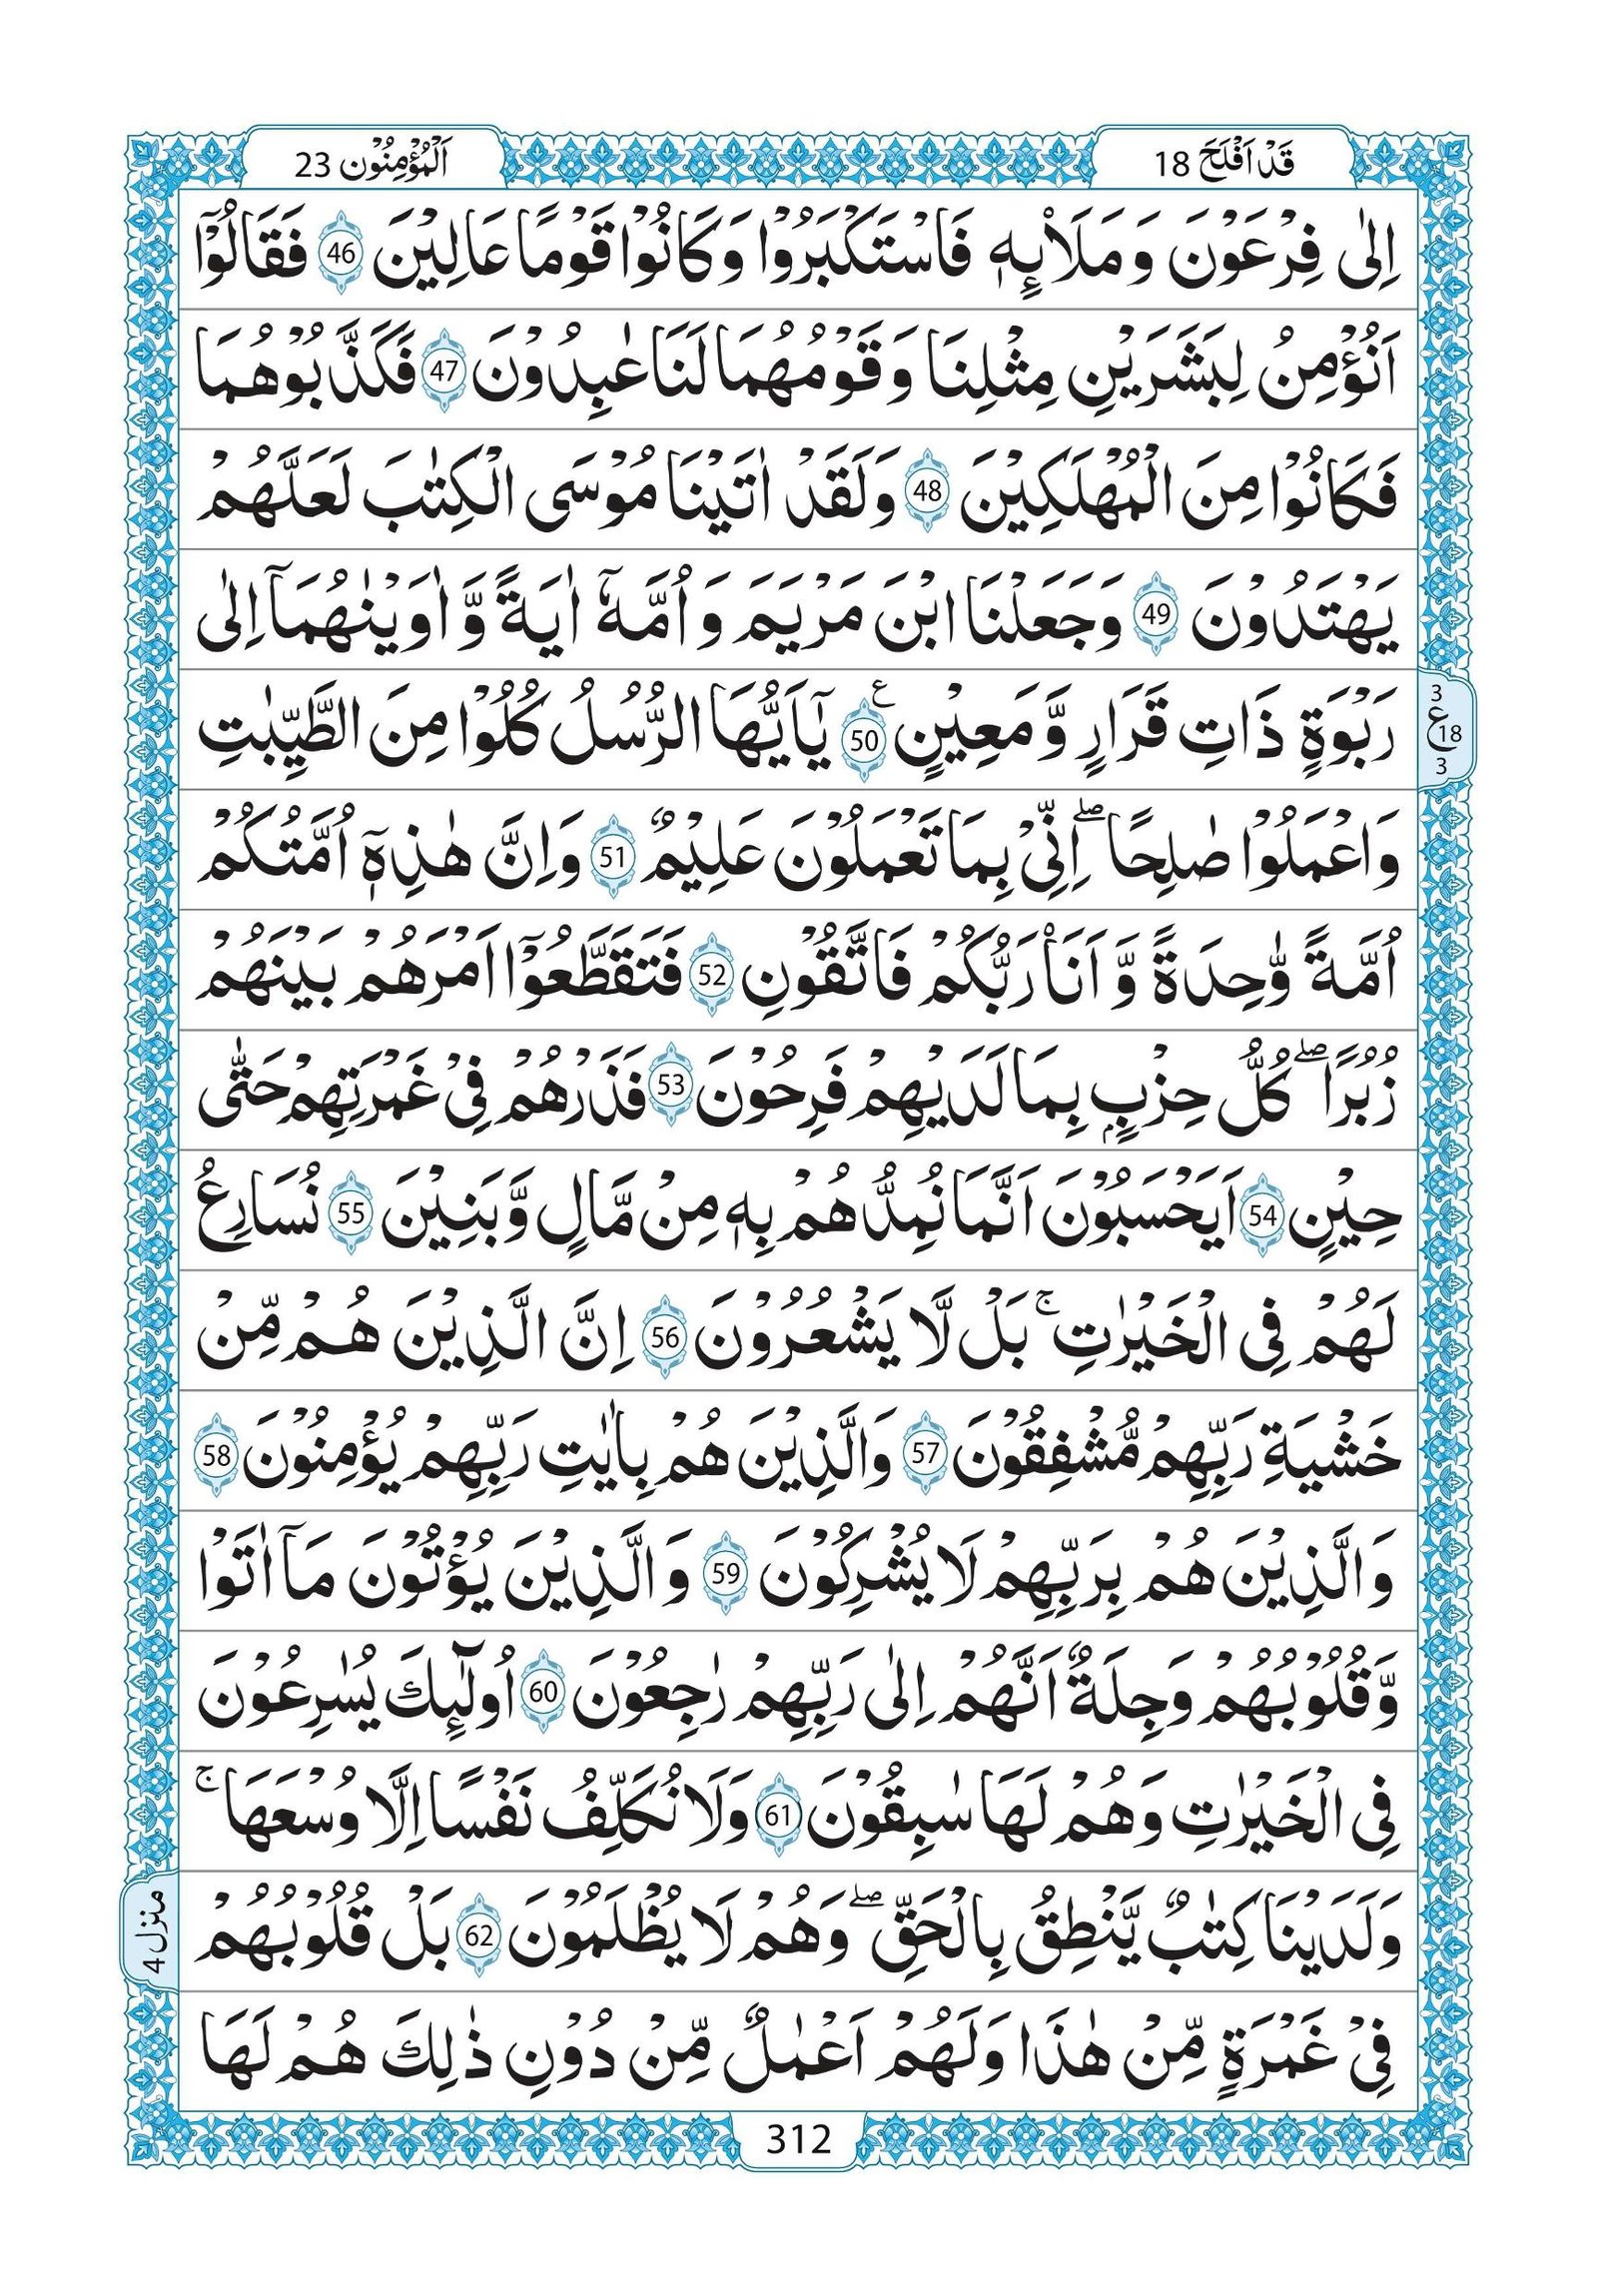 قَدْ اَفْلَحَ 18
اَلْمُؤْمِنُوْن 23
اِلٰى فِرْعَوْنَ وَ مَلَا۟ئِهٖ فَاسْتَكْبَرُوْا وَ كَانُوْا قَوْمًا عَالِيْنَ 46 فَقَالُوْۤا
اَنُؤْمِنُ لِبَشَرَيْنِ مِثْلِنَا وَ قَوْمُهُمَا لَنَا عٰبِدُوْنَ 47 فَكَذَّبُوْهُمَا
فَكَانُوْا مِنَ الْمُهْلَكِيْنَ 48 وَلَقَدْ اٰتَيْنَا مُوْسَى الْكِتٰبَ لَعَلَّهُمْ
يَهْتَدُوْنَ 49 وَجَعَلْنَا ابْنَ مَرْيَمَ وَ اُمَّهٗۤ اٰيَةً وَّ اٰوَيْنٰهُمَاۤ اِلٰى
رَبْوَةٍ ذَاتِ قَرَارٍ وَّ مَعِيْنٍ ع 50 يٰۤاَيُّهَا الرُّسُلُ كُلُوْا مِنَ الطَّيِّبٰتِ
3 ع 18 3
وَاعْمَلُوْا صٰلِحًا ؕۖ اِنِّيْ بِمَا تَعْمَلُوْنَ عَلِيْمٌ 51 وَاِنَّ هٰذِهٖۤ اُمَّتُكُمْ
اُمَّةً وّٰحِدَةً وَّ اَنَا۠ رَبُّكُمْ فَاتَّقُوْنِ 52 فَتَقَطَّعُوْۤا اَمْرَهُمْ بَيْنَهُمْ
زُبُرًا ۖ كُلُّ حِزْبٍۭ بِمَا لَدَيْهِمْ فَرِحُوْنَ 53 فَذَرْهُمْ فِيْ غَمْرَتِهِمْ حَتّٰى
حِيْنٍ 54 اَيَحْسَبُوْنَ اَنَّمَا نُمِدُّهُمْ بِهٖ مِنْ مَّالٍ وَّبَنِيْنَ 55 نُسَارِعُ
لَهُمْ فِى الْخَيْرٰتِ ۚ بَلْ لَّا يَشْعُرُوْنَ 56 اِنَّ الَّذِيْنَ هُمْ مِّنْ
خَشْيَةِ رَبِّهِمْ مُّشْفِقُوْنَ 57 وَالَّذِيْنَ هُمْ بِاٰيٰتِ رَبِّهِمْ يُؤْمِنُوْنَ 58
وَالَّذِيْنَ هُمْ بِرَبِّهِمْ لَا يُشْرِكُوْنَ 59 وَالَّذِيْنَ يُؤْتُوْنَ مَاۤ اٰتَوْا
وَّقُلُوْبُهُمْ وَجِلَةٌ اَنَّهُمْ اِلٰى رَبِّهِمْ رٰجِعُوْنَ 60 اُولٰٓئِكَ يُسٰرِعُوْنَ
فِى الْخَيْرٰتِ وَهُمْ لَهَا سٰبِقُوْنَ 61 وَلَا نُكَلِّفُ نَفْسًا اِلَّا وُسْعَهَا ۚ
وَلَدَيْنَا كِتٰبٌ يَّنْطِقُ بِالْحَقِّ ۖ وَهُمْ لَا يُظْلَمُوْنَ 62 بَلْ قُلُوْبُهُمْ
منزل 4
فِيْ غَمْرَةٍ مِّنْ هٰذَا وَلَهُمْ اَعْمٰلٌ مِّنْ دُوْنِ ذٰلِكَ هُمْ لَهَا
312